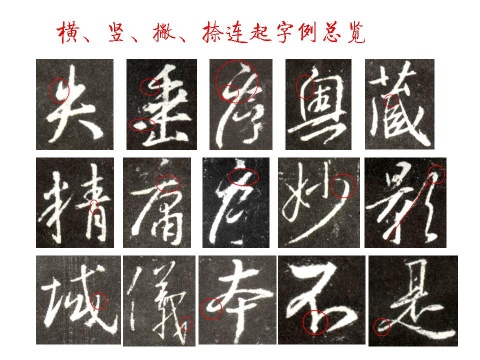 横、竖、撇、捺连起字例总览
失垂序奥藏
精庸应妙影
城仪本不是